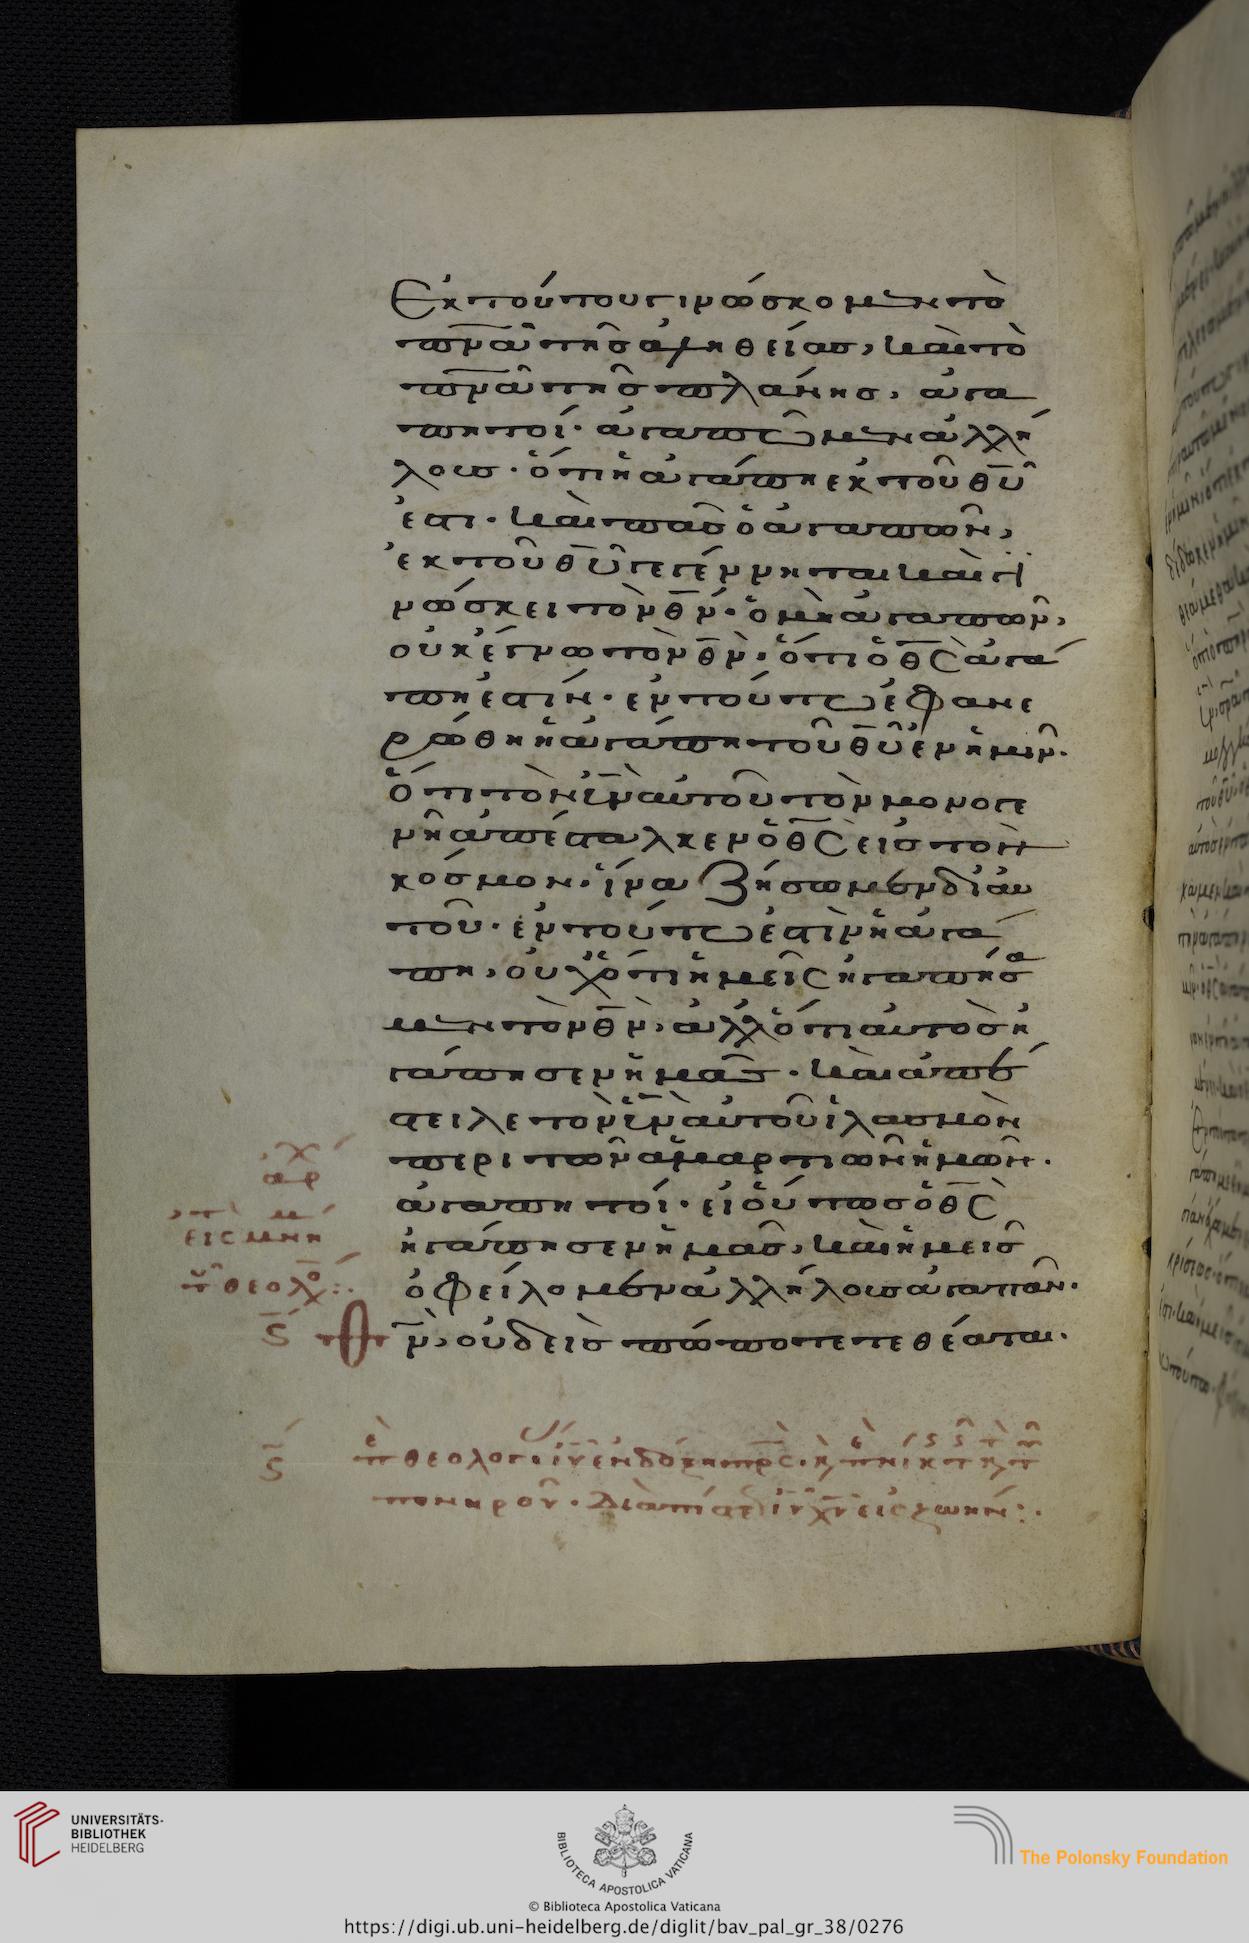 Ἐκ τούτου γινώσκομεν τὸ
πν̅α τῆς ἀληθείας, καὶ τὸ
πν̅α τῆς πλάνης, ἀγα
πητοί· ἀγαπῶμεν ἀλλή
λους· ὅτι ἡ ἀγάπη ἐκ τοῦ θ̅υ
ἐστι· καὶ πᾶς ὁ ἀγαπῶν,
ἐκ τοῦ θ̅υ γεγέννηται καὶ γϊ
νώσκει τὸν θ̅ν· ὁ μὴ ἀγαπῶν,
οὐκ ἔγνω τὸν θ̅ν· ὅτι ὁ θ̅ς ἀγά
πη ἐστίν· ἐν τούτω ἐφανε
ρώθη ἡ ἀγάπη τοῦ θ̅υ ἐν ἡμῖν·
ὅτι τὸν υ̅ν αὐτοῦ τὸν μονογε
νῆ ἀπέσταλκεν ὁ θ̅ς εἰς τὸν
κόσμον· ἵνα ζήσωμεν δι' αὐ
τοῦ· ἐν τούτω ἐστὶν ἡ ἀγά
πη, οὐχ ὅτι ἡμεῖς ἠγαπήσα
μεν τὸν θ̅ν, ἀλλ' ὅτι αὐτὸς ἠ
γάπησεν ἡμᾶς· καὶ ἀπέ
στειλε τὸν υ̅ν αὐτοῦ ἱλασμὸν
περὶ τῶν ἁμαρτιῶν ἡμῶν·
ἀγαπητοί· εἰ οὕτως ὁ θ̅ς
ἠγάπησεν ἡμᾶς, καὶ ἡμεῖς
ὀφείλομεν ἀλλήλους ἀγαπᾶν·
ν̅, οὐδεὶς πώποτε τεθέαται·
ἀρχ
εἰς
θεολό:·
ς̅
θ
ς̅
θεολογ
πονηροῦ· Διὰ ι̅υ χ̅υ εἰς ζωὴν:·
UNIVERSITÄTS-
BIBLIOTHEK
HEIDELBERG
BIBLIOTECA APOSTOLICA VATICANA
The Polonsky Foundation
© Biblioteca Apostolica Vaticana
https://digi.ub.uni-heidelberg.de/diglit/bav_pal_gr_38/0276